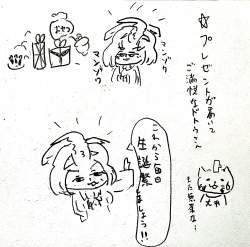 ☆プレゼントが届いて
ご満悦なドトウさん
マンゾク
マンゾク
これから毎日
生誕祭
しましょう!!
また無茶な…